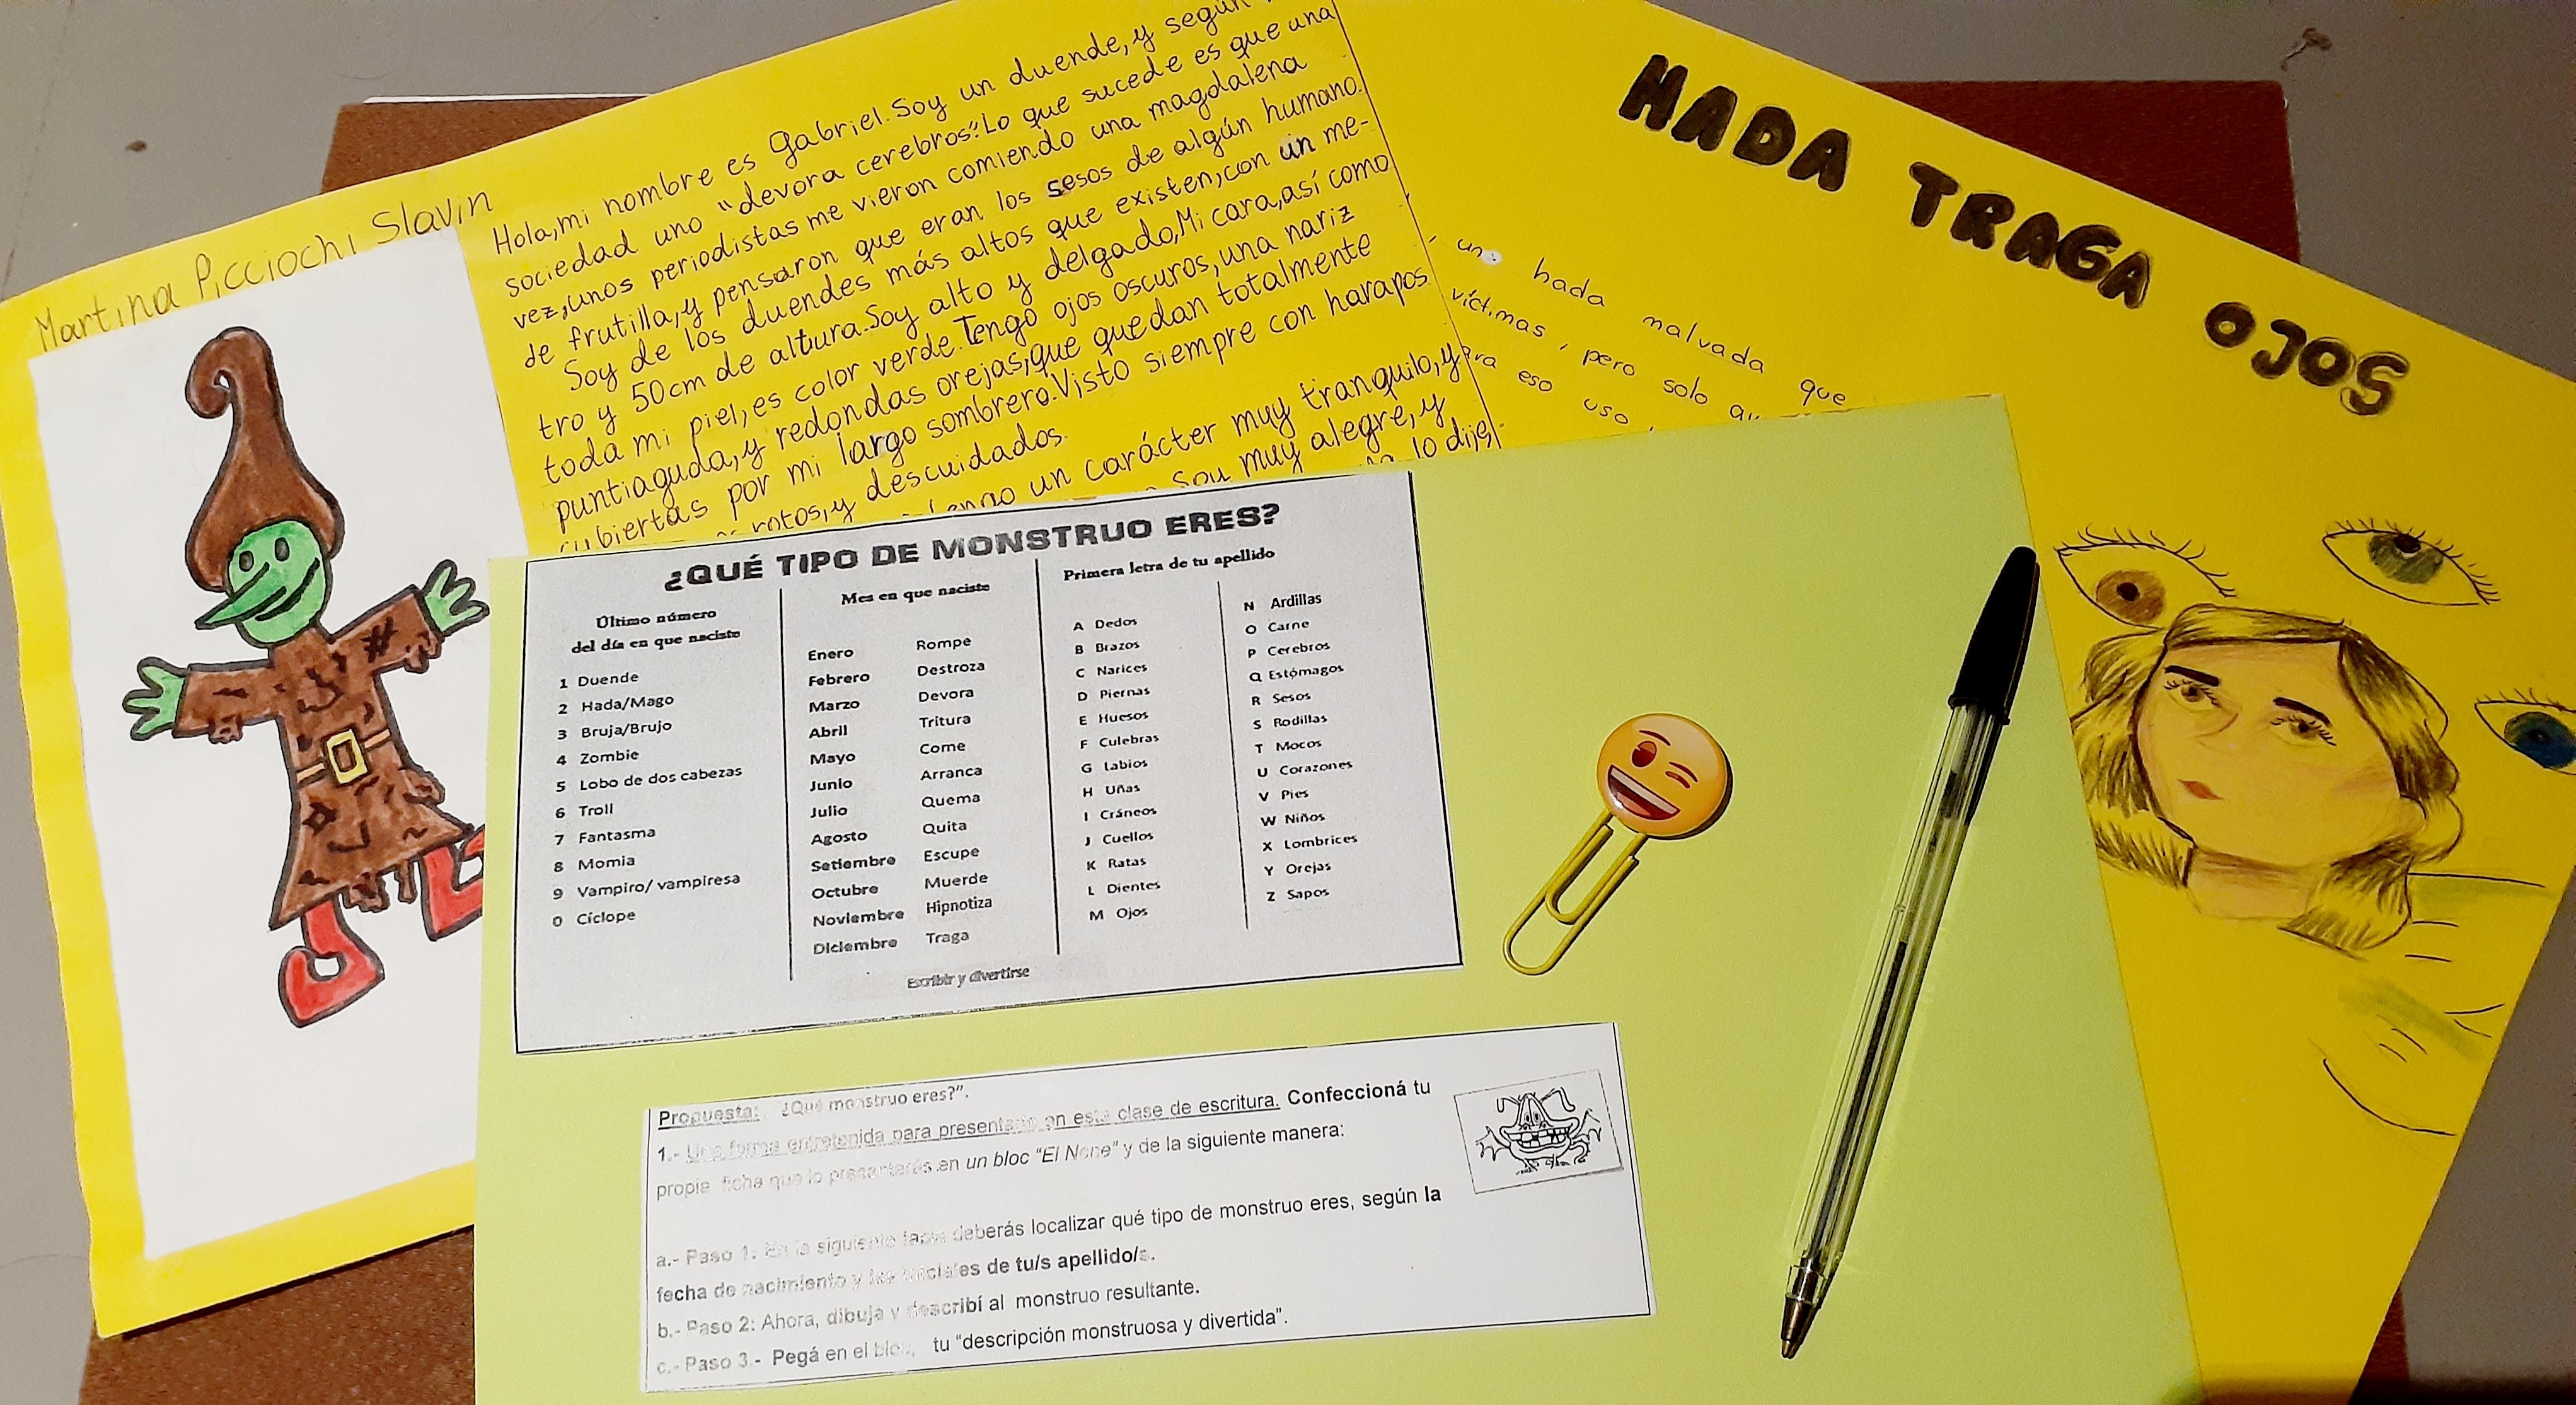 Martina Picciochi Slavin
Hola, mi nombre es Gabriel. Soy un duende, y según
sociedad uno "devora cerebros". Lo que sucede es que una
vez, unos periodistas me vieron comiendo una magdalena
de frutilla, y pensaron que eran los sesos de algún humano.
Soy de los duendes más altos que existen, con un me-
tro y 50cm de altura. Soy alto y delgado, Mi cara, así como
toda mi piel, es color verde. Tengo ojos oscuros, una nariz
puntiaguda, y redondas orejas, que quedan totalmente
cubiertas por mi largo sombrero. Visto siempre con harapos
rotos, y descuidados.
tengo un carácter muy tranquilo, y
Soy muy alegre, y
lo dije
HADA TRAGA OJOS
una hada malvada que
víctimas, pero solo
para eso uso
¿QUÉ TIPO DE MONSTRUO ERES?
Último número
del día en que naciste
1 Duende
2 Hada/Mago
3 Bruja/Brujo
4 Zombie
5 Lobo de dos cabezas
6 Troll
7 Fantasma
8 Momia
9 Vampiro/ vampiresa
0 Cíclope
Mes en que naciste
Enero Rompe
Febrero Destroza
Marzo Devora
Abril Tritura
Mayo Come
Junio Arranca
Julio Quema
Agosto Quita
Setiembre Escupe
Octubre Muerde
Noviembre Hipnotiza
Diciembre Traga
Primera letra de tu apellido
A Dedos
B Brazos
C Narices
D Piernas
E Huesos
F Culebras
G Labios
H Uñas
I Cráneos
J Cuellos
K Ratas
L Dientes
M Ojos
N Ardillas
O Carne
P Cerebros
Q Estómagos
R Sesos
S Rodillas
T Mocos
U Corazones
V Pies
W Niños
X Lombrices
Y Orejas
Z Sapos
Escribir y divertirse
Propuesta: "¿Qué monstruo eres?".
1.- Una forma entretenida para presentarte en esta clase de escritura. Confeccioná tu
propia ficha que lo presentarás en un bloc "El Nene" y de la siguiente manera:
a.- Paso 1: En la siguiente tabla deberás localizar qué tipo de monstruo eres, según la
fecha de nacimiento y las iniciales de tu/s apellido/s.
b.- Paso 2: Ahora, dibuja y describí al monstruo resultante.
c.- Paso 3.- Pegá en el bloc, tu "descripción monstruosa y divertida".